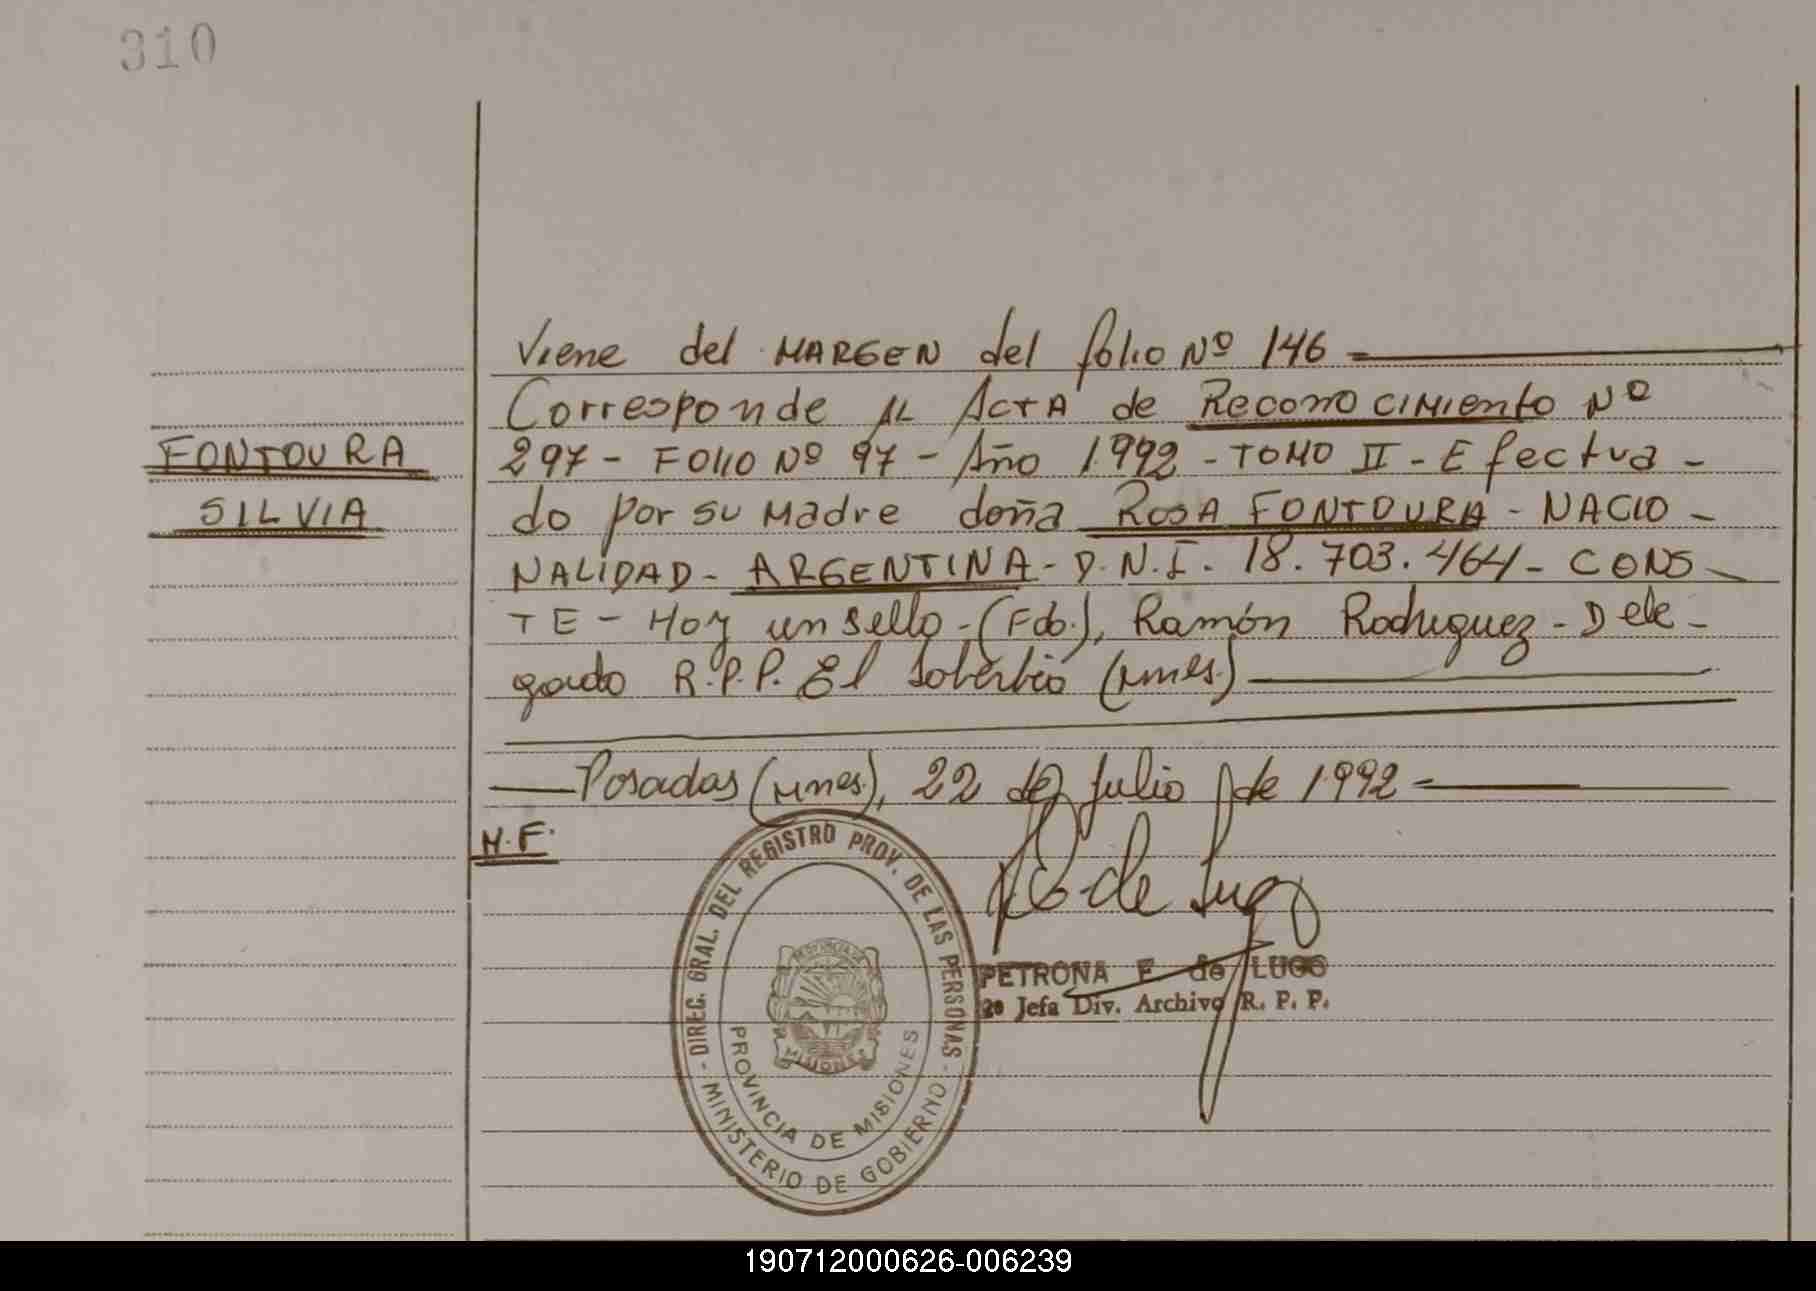 310
Viene del MARGEN del folio Nº 146
Corresponde AL ActA de Reconocimiento Nº
FONTOURA
297 - FOLIO Nº 97 - Año 1992 - TOMO II - Efectua -
SILVIA
do por su Madre doña ROSA FONTOURA - NACIO -
NALIDAD - ARGENTINA - D.N.I. 18.703.464 - CONS -
TE - Hoy un sello - (Fdo.), Ramón Rodriguez - Dele -
gado R.P.P. El Soberbio (Mnes.)
Posadas (Mnes.), 22 de Julio de 1992 -
M.F.
DIREC. GRAL. DEL REGISTRO PROV. DE LAS PERSONAS
MINISTERIO DE GOBIERNO
PROVINCIA DE
MISIONES
PROVINCIA DE MISIONES
de Lugo
PETRONA F de LUGO
2º Jefa Div. Archivo R. P. P.
190712000626-006239